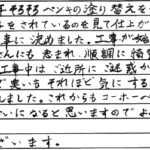 そろそろペンキの塗り替えを
をされているのを見て仕上が
事に決めました。工事が始
さんにも恵まれ、順調に
工事中はご近所に迷惑か
で臭いもそれほど気にする
しました。これからもコーホー
いになると思いますのでよ
います。